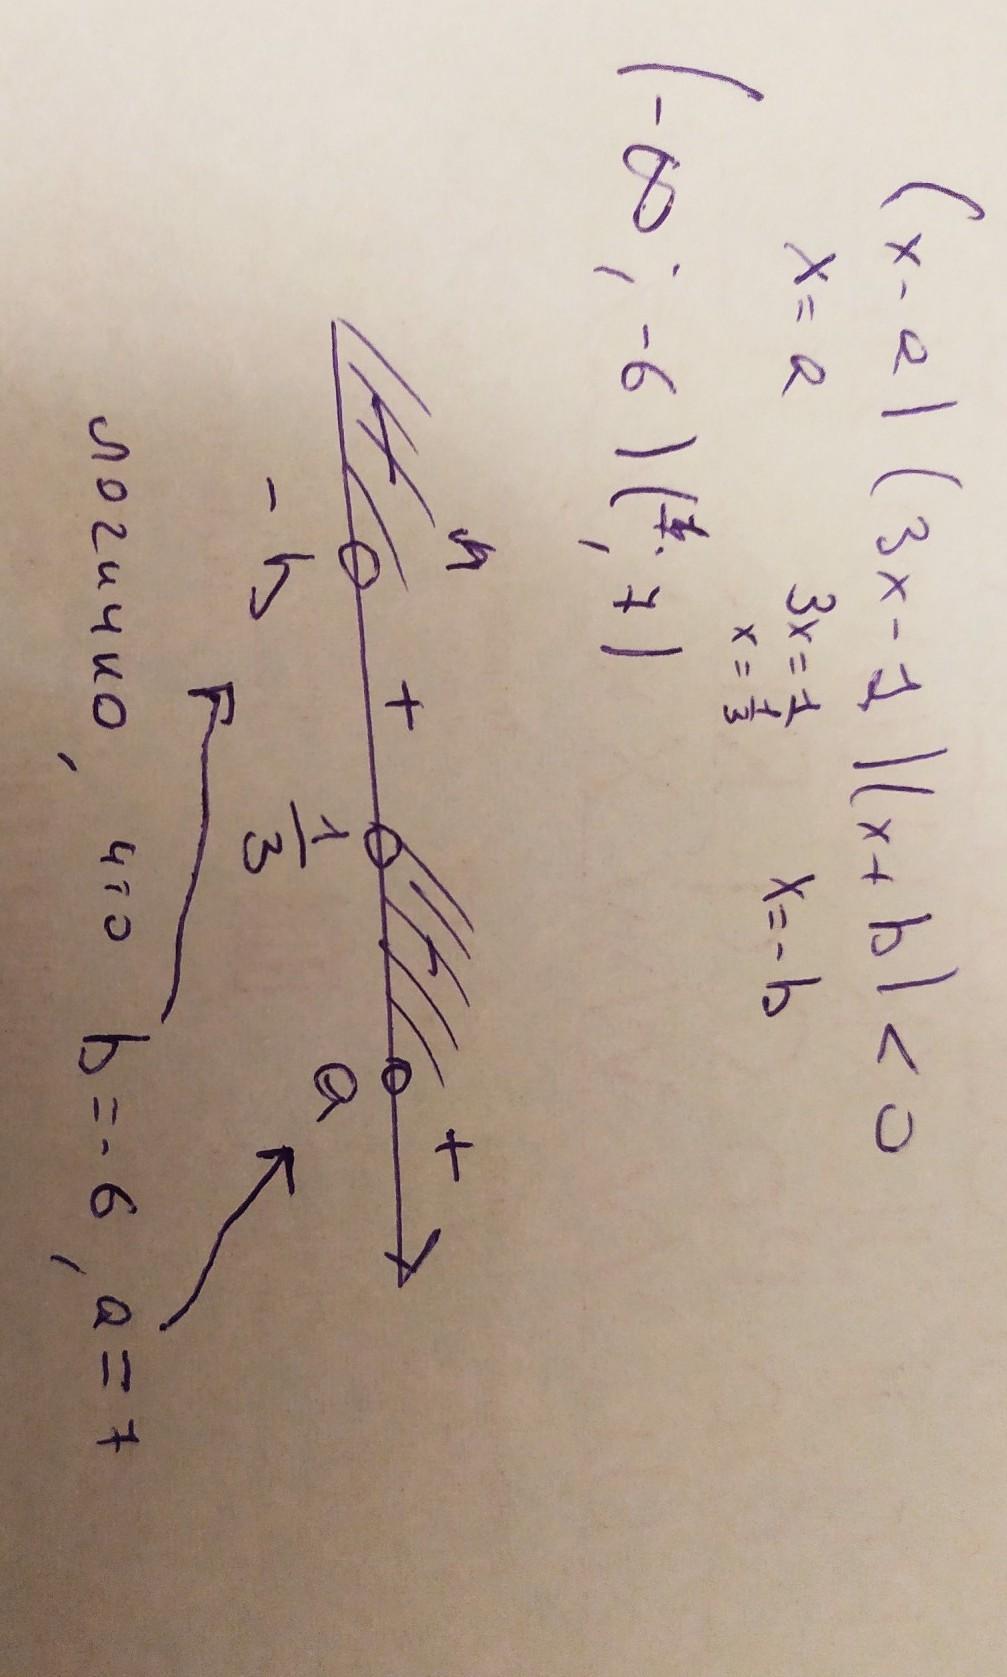 (x-a)(3x-1)(x+b)<0
x=a 3x=1 x=-b
x=1/3
(-∞; -6)(; 7)
- + - +
-b 1/3 a
логично, что b=-6, a=7